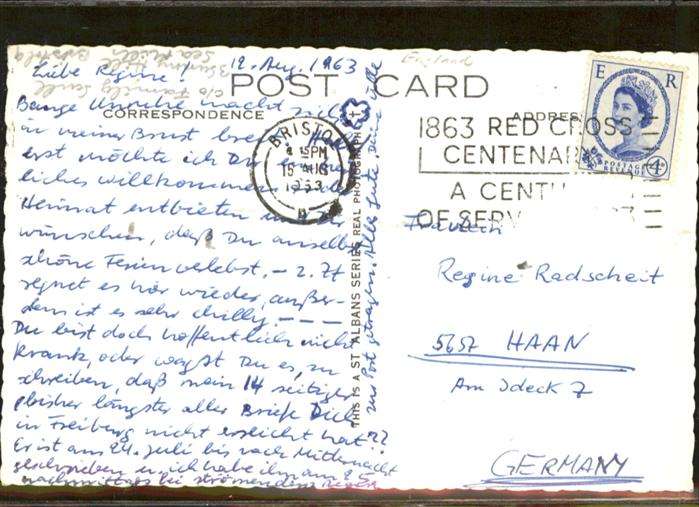 England
c/o Family Snell
Bristol
12. Aug. 1963
POST CARD
CORRESPONDENCE
ADDRESS
Liebe Regine!
Bange Unruhe macht sich
in meiner Brust breit.
erst möchte ich Dir
liches willkommen in der
Heimat entbieten und Dir
wünschen, daß Du anschl.
schöne Ferien verlebst. – z. Zt
regnet es hier wieder, außer-
dem ist es sehr chilly. – – –
Du bist doch hoffentlich nicht
krank, oder wagst Du es, zu
schreiben, daß mein 14 seitiger
(bisher längster aller Briefe Dich
in Freiburg nicht erreicht hat??
Er ist am 24. Juli bis nach Mitternacht
geschrieben u. ich habe ihn am 25.
nachmittags bei strömendem Regen
zur Post getragen. Alles Gute, Deine
THIS IS A ST. ALBANS SERIES REAL PHOTOGRAPH
BRISTOL
4 15PM
15 AUG
1963
1863 RED CROSS
CENTENA
A CENTU
OF SERV
E R
POSTAGE
REVENUE
4D
Fräulein
Regine Radscheit
5657 HAAN
Am Ideck 7
GERMANY